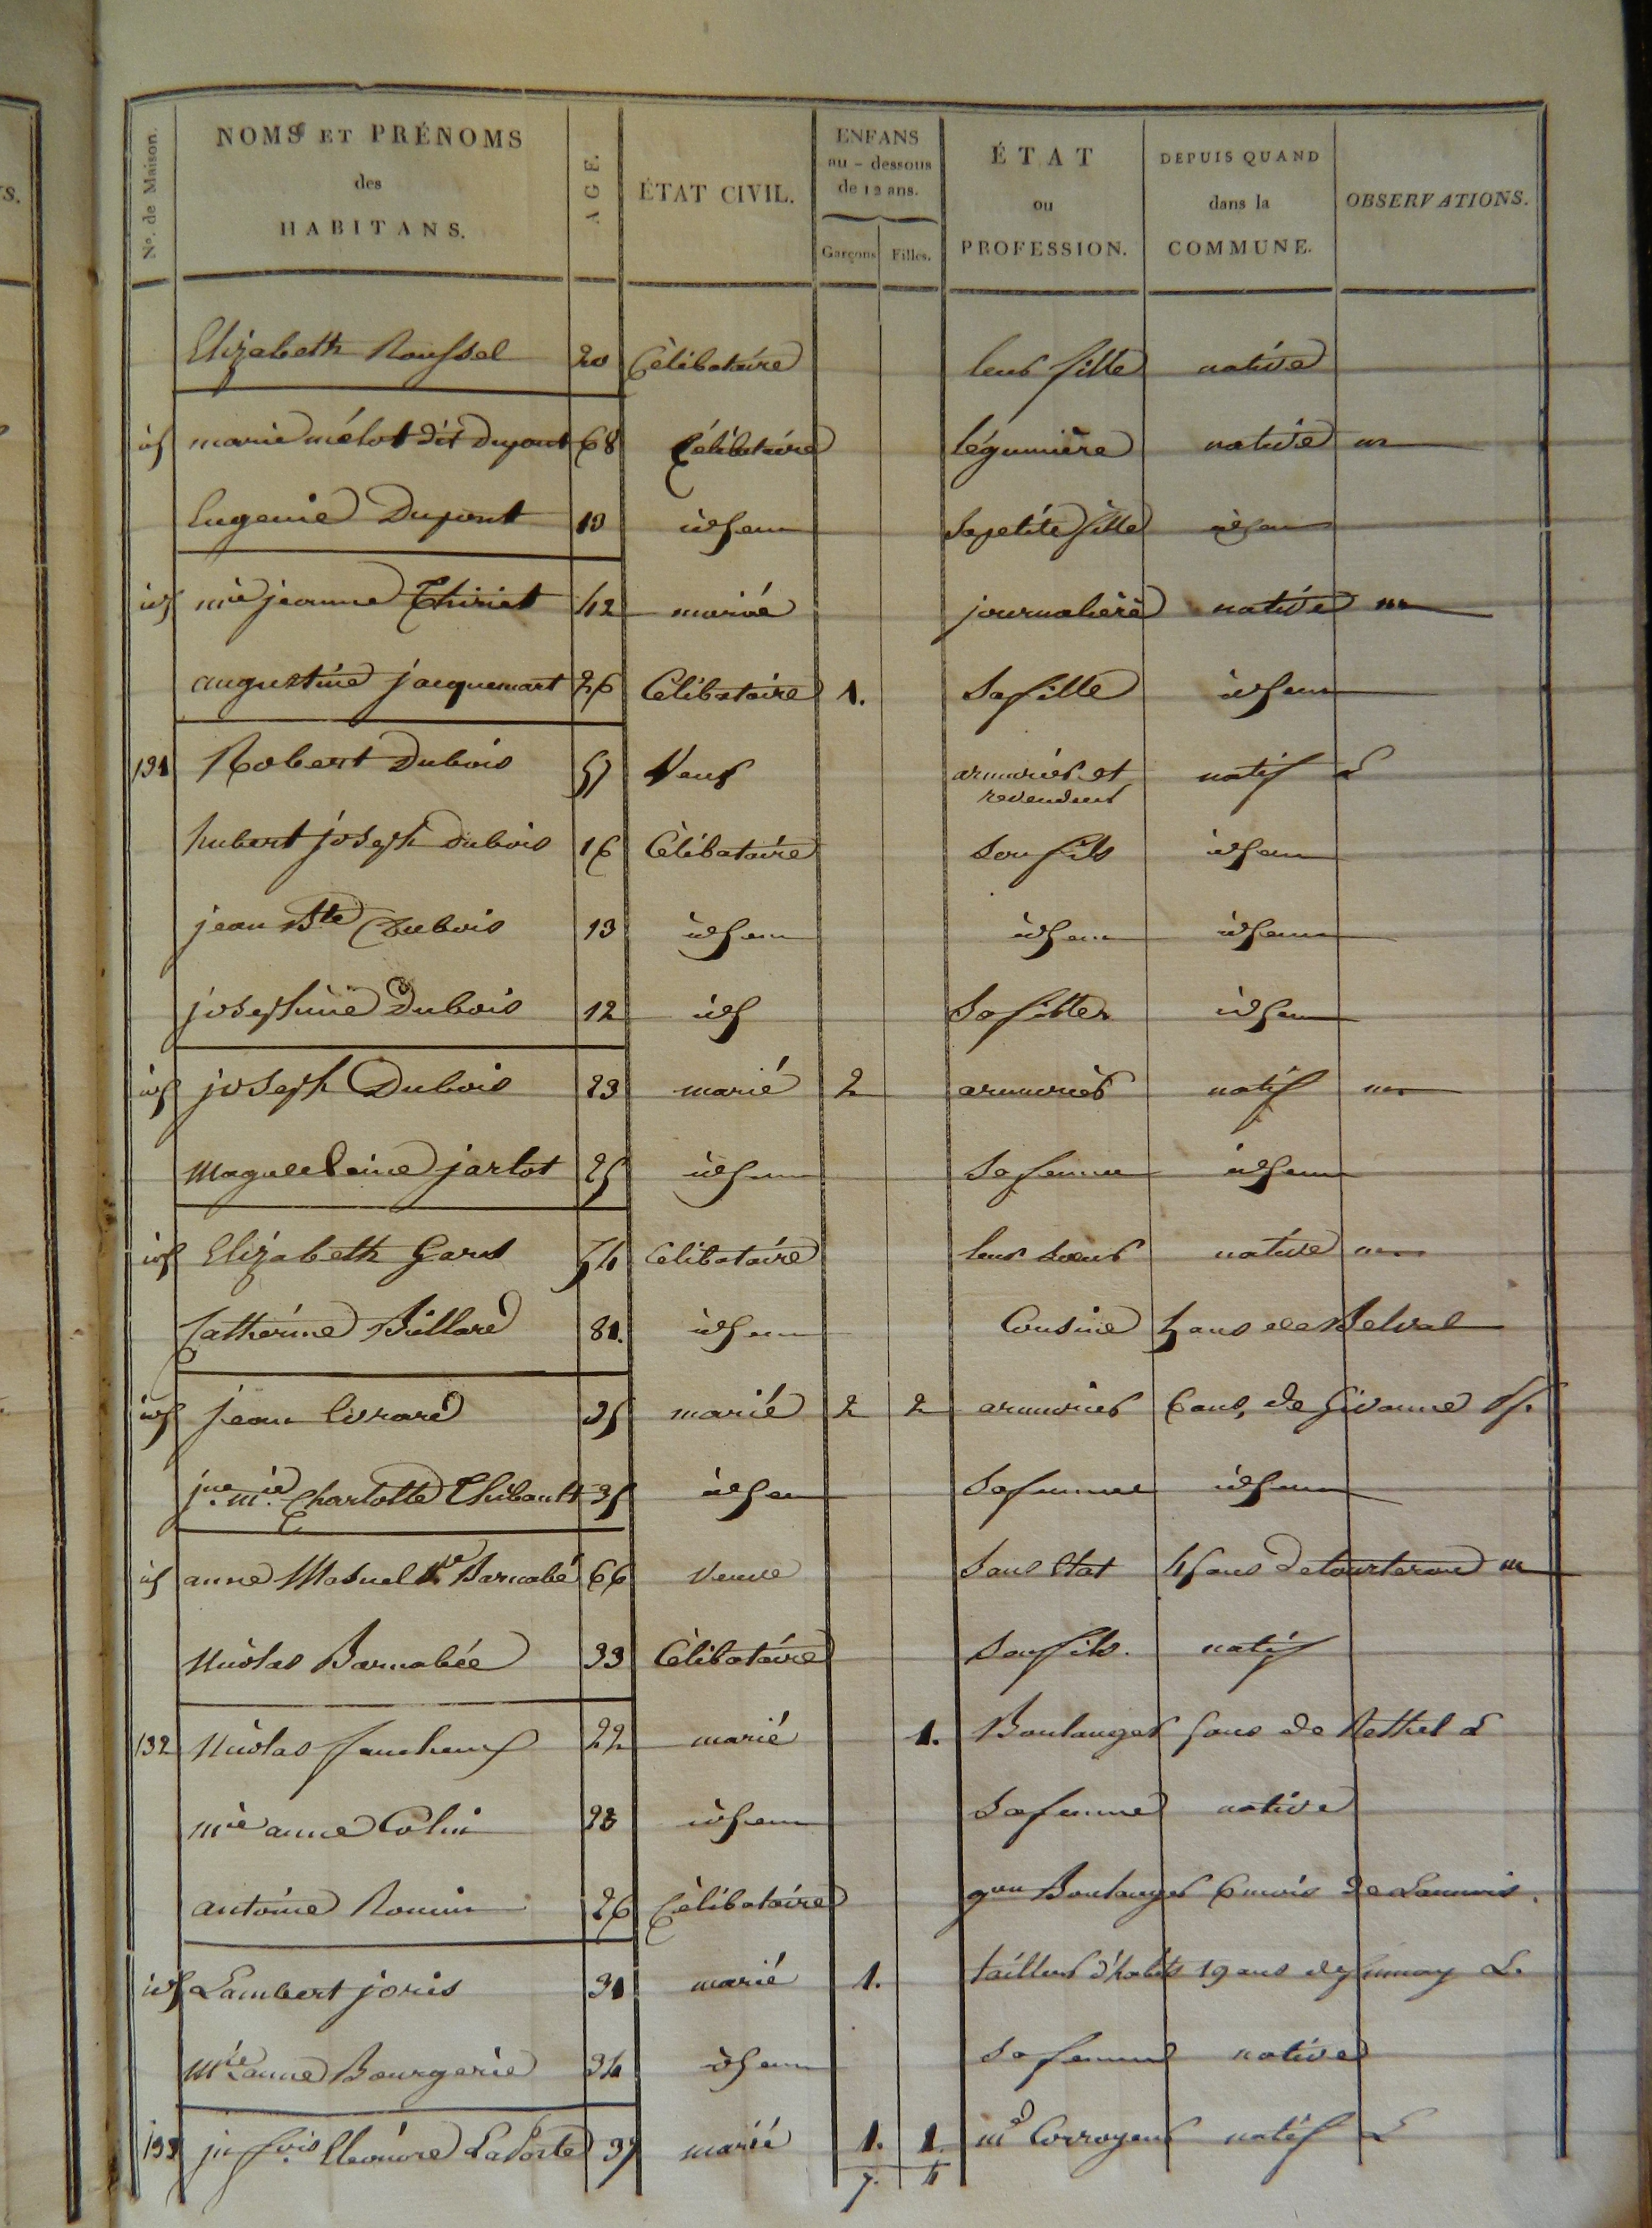 S.
N°. de Maison.
NOMS ET PRÉNOMS
des
HABITANS.
AGE.
ÉTAT CIVIL.
ENFANS
au-dessous
de 12 ans.
Garçons Filles.
ÉTAT
ou
PROFESSION.
DEPUIS QUAND
dans la
COMMUNE.
OBSERVATIONS.
Elizabeth Roussel 20 Célibataire leur fille native
id marie mélot dit Dupont 68 Célibataire légumière native
Eugenie Dupont idem sa petite fille idem
id mie jeanne Thiriet 42 marié journalière native
augustine jacquemart 26 Célibataire 1. sa fille idem
131 Robert Dubois Veuf armurier et natif
revendeur
hubert joseph dubois 16 Célibataire son fils idem
jean Bte Dubois 13 idem idem idem
josephine Dubois 12 id sa fille idem
id joseph Dubois 23 marié 2 armurier natif
Magdeleine jarlot 25 idem sa femme idem
id Elizabeth 54 Célibataire leur soeur native
Catherine Billard 81. idem Cousine ans de Belval
id jean Evrard 35 marié 2 2 armurier 6 ans, de Givonne
jne. mie. Charlotte Thibault 35 idem sa femme idem
id anne Masuel Ve Barnabé 66 veuve sans Etat 45 ans de tourteron
Nicolas Barnabée 33 Célibataire son fils. natif
132 Nicolas 22 marié 1. Boulanger 5 ans de Rethel
mie anne Colin 23 idem sa femme native
antoine Romin 26 Célibataire gon Boulanger 6 mois de Launois.
id Lambert joris 31 marié 1. tailleur d'habits 19 ans de
mie anne Bourgerie 34 idem sa femme native
133 jn fois. Eleonore LaPorte 37 marié 1. 1. md Corroyeur natif
7. 4